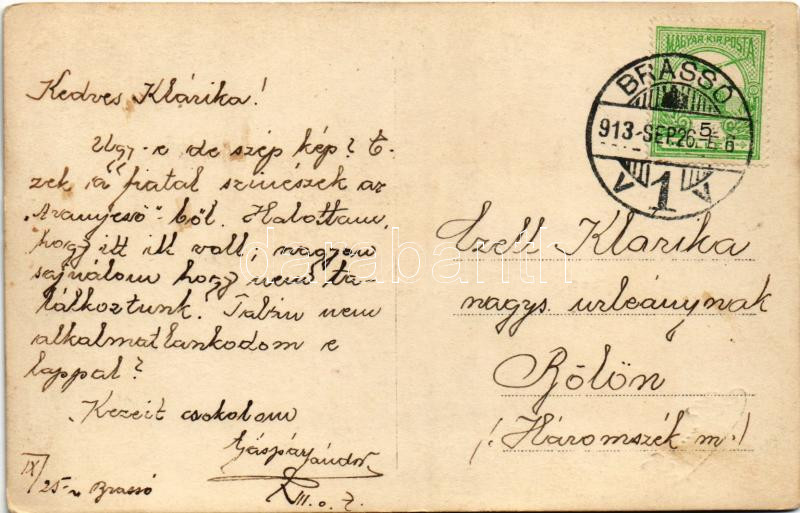 Kedves Klárika!
Ugy-e de szép kép? E-
zek a fiatal szinészek az
"Aranyeső"-ből. Halottam,
hogy itt ilt volt, nagyon
sajnálom hogy nem ta-
lálkoztunk. Talán nem
alkalmatlankodom e
lappal?
Kezeit csokolom
Gáspár Sándor
III. o. t.
IX/25-n Brassó
MAGYAR KIR. POSTA
BRASSÓ
913-SEP.26. 5
1
Klárika
nagys. urleánynak
Bölön
(Háromszék m.)
darabanth